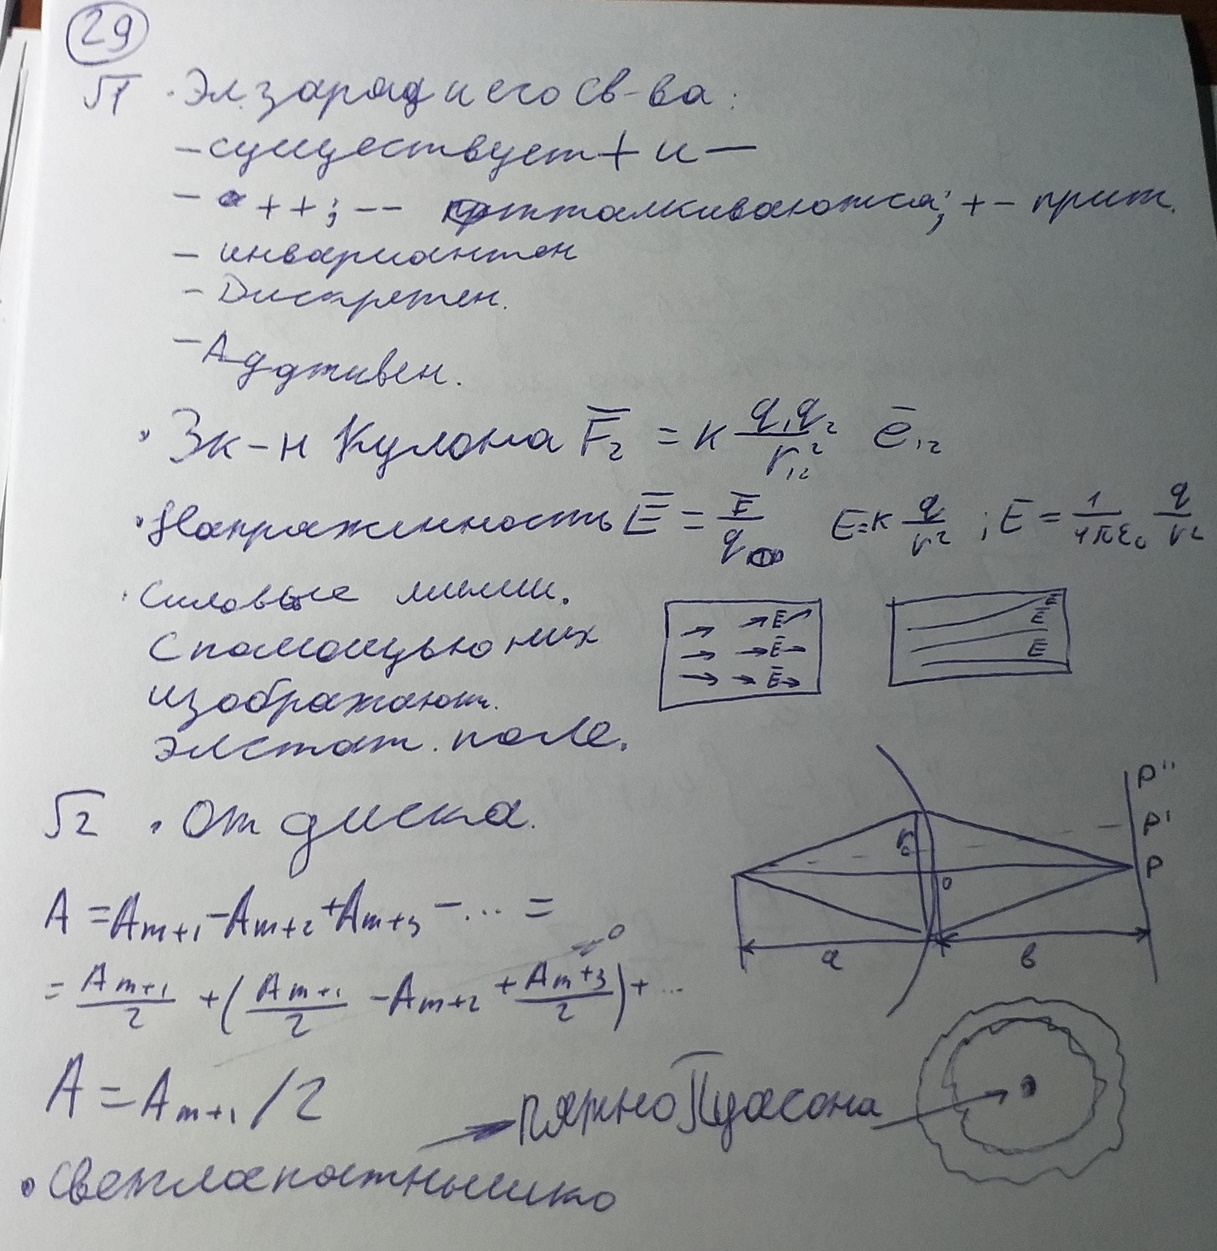 29
√1 · Эл. заряд и его св-ва:
- существует + и —
- ++; -- отталкиваются; +- прит.
- инвариантен
- Дискретен.
- Аддтивен.
· Зк-н Кулона F̅₂ = к q₁q₂/r₁₂² e̅₁₂
· Напряженность E̅ = F̅/q E=к q/r² ; E = 1/4πε₀ q/r²
· Силовые линии.
С помощью них
изображают.
элстат. поле.
E̅ E̅ E̅
E̅ E̅ E̅
√2 · От диска.
P''
P'
P
r₀
0
a
b
A = Aₘ₊₁ - Aₘ₊₂ + Aₘ₊₃ - ... =
= Aₘ₊₁/2 + (Aₘ₊₁/2 - Aₘ₊₂ + Aₘ₊₃/2) + ...
0
A = Aₘ₊₁ / 2
пятно Пуасона
· светлое пятнышко